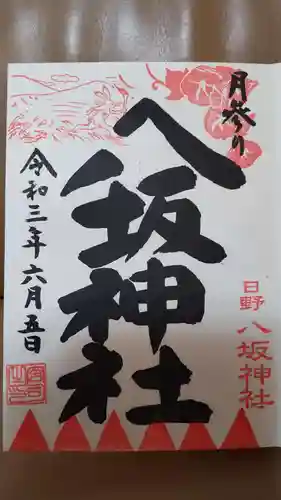 月参り
八坂神社
日野
八坂神社
令和三年六月五日